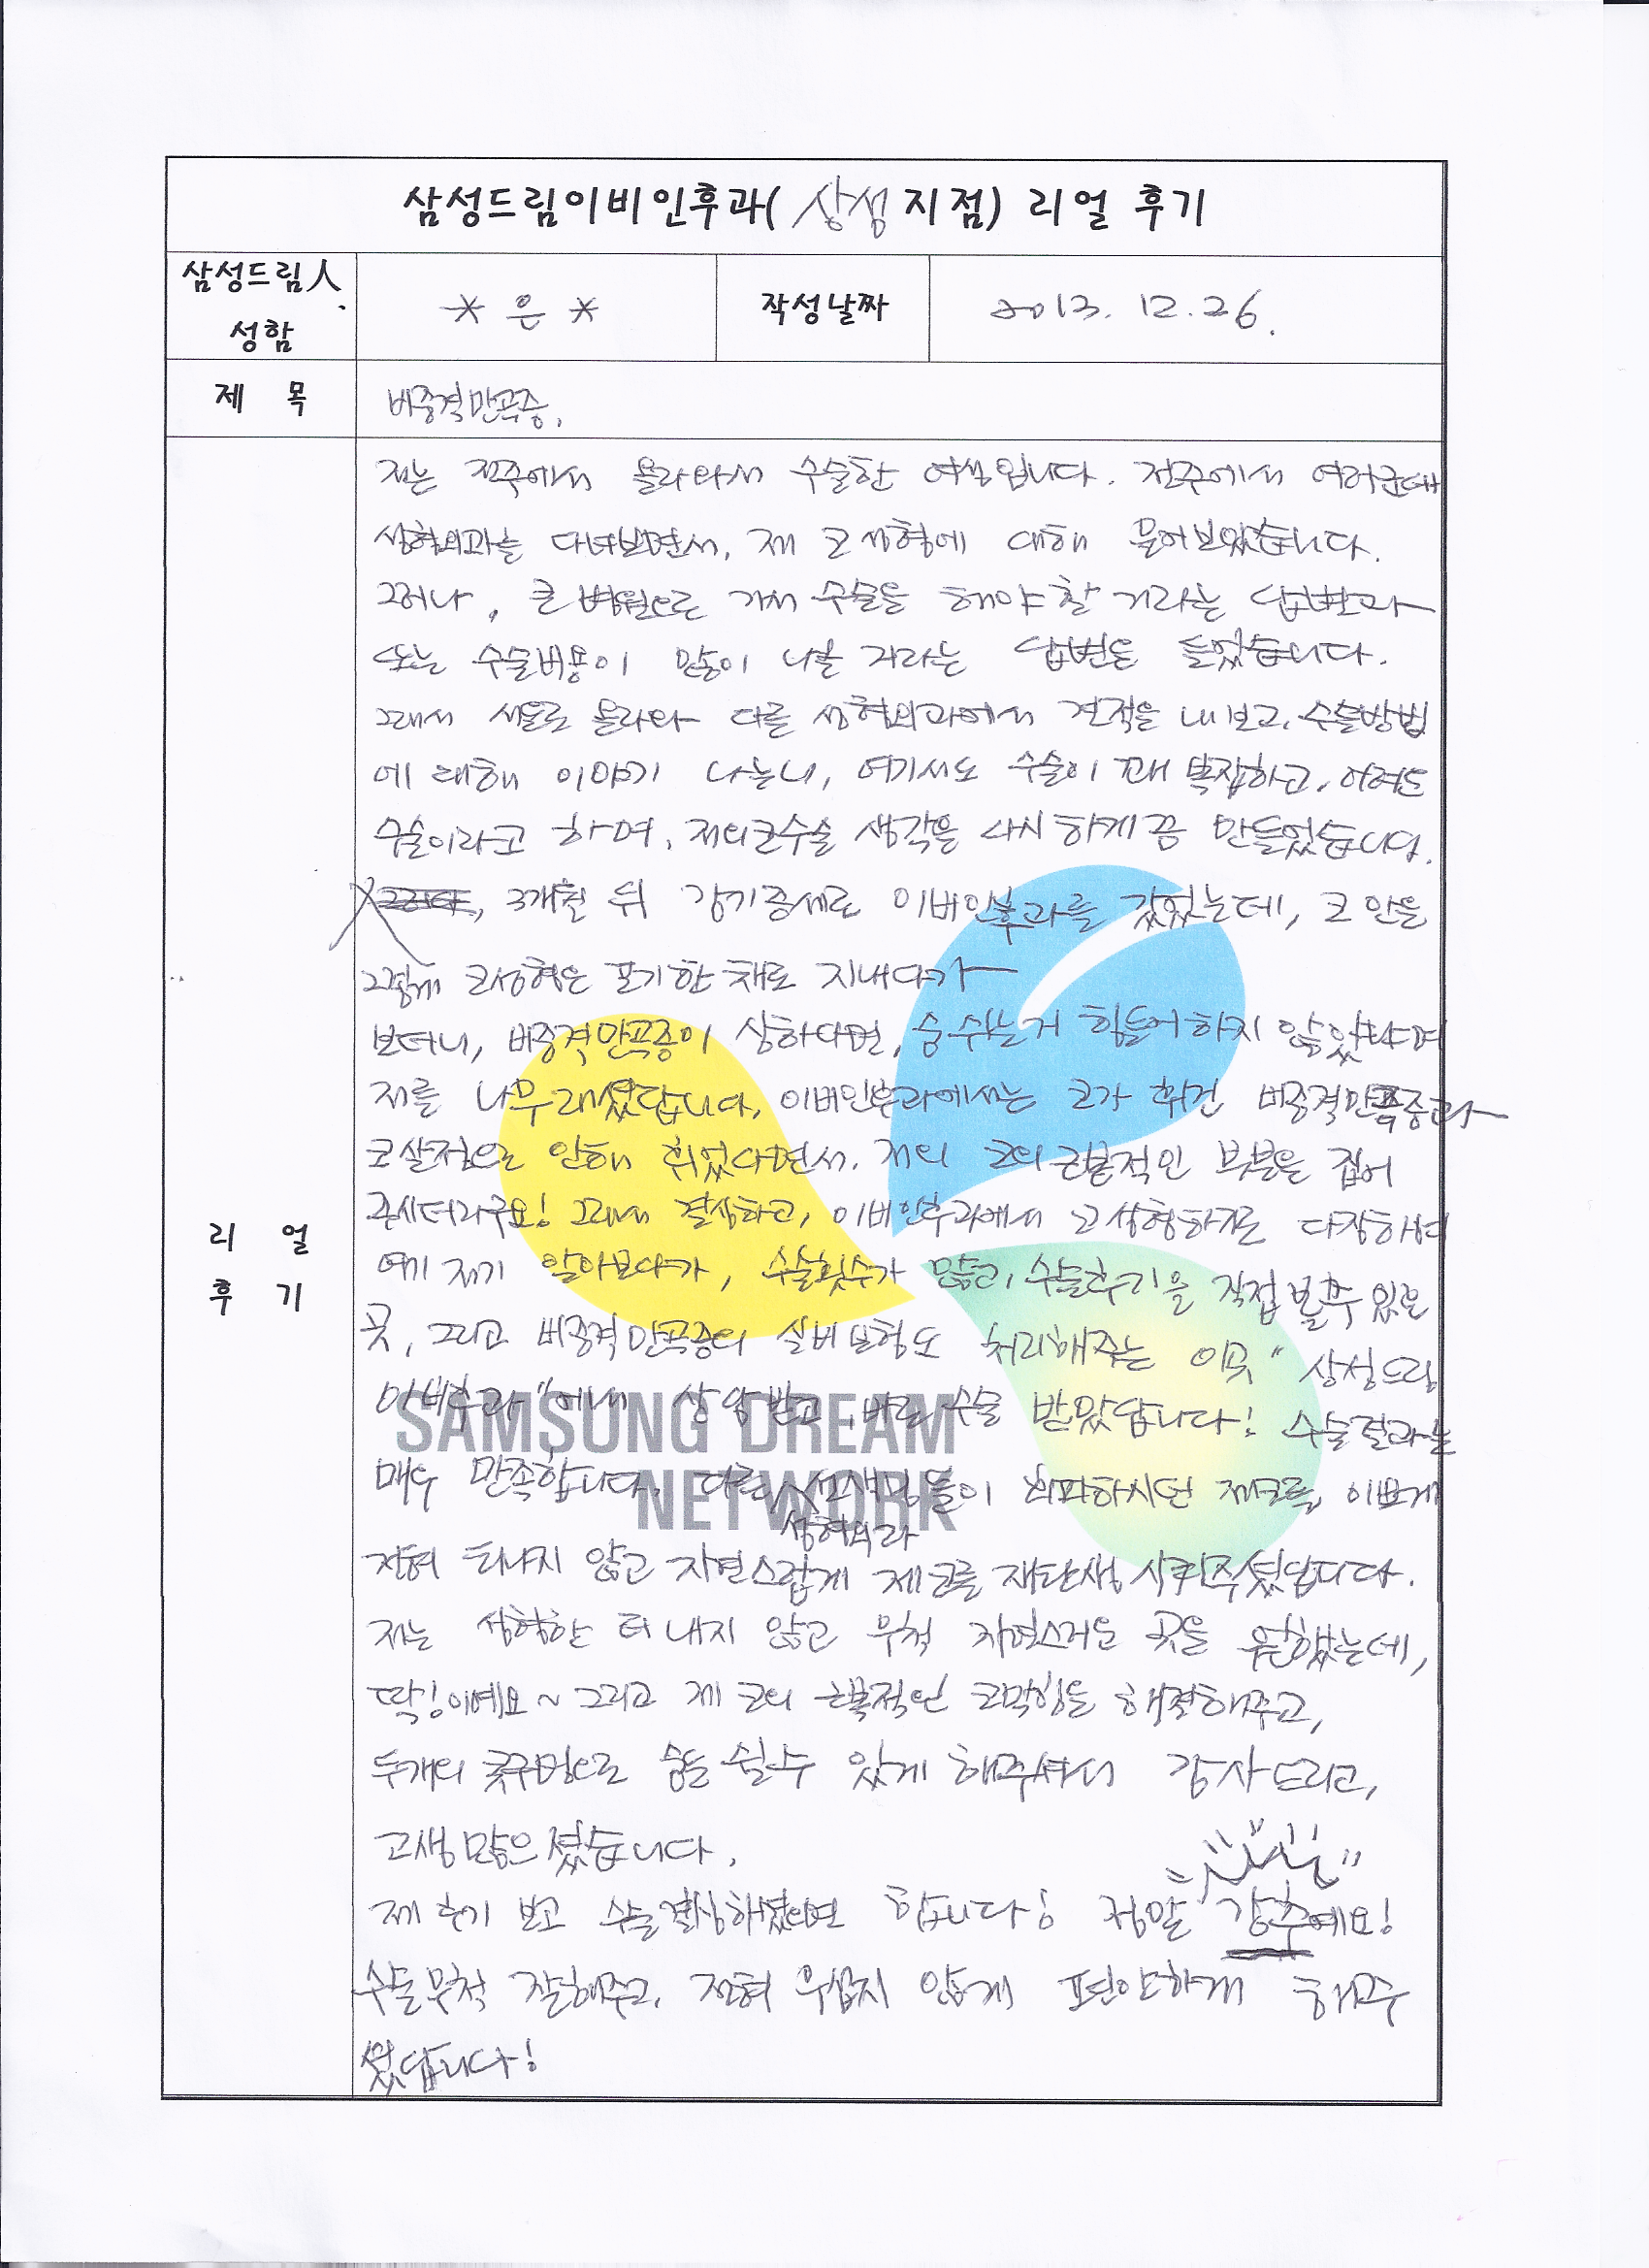 삼성드림이비인후과( 삼성 지점) 리얼 후기
삼성드림人
성함
* 은 *
작성날짜
2013. 12. 26.
제 목
비중격만곡증.
리 얼
후 기
저는 전주에서 올라와서 수술한 여성입니다. 전주에서 여러군데
성형외과를 다녀보면서, 제 코 성형에 대해 물어보았습니다.
그러나, 큰 병원으로 가서 수술을 해야 할 거라는 답변과
또는 수술비용이 많이 나올 거라는 답변을 들었습니다.
그래서 서울로 올라와 다른 성형외과에서 견적을 내보고, 수술방법
에 대해 이야기 나눴더니, 여기서도 수술이 꽤 복잡하고, 어려운
수술이라고 하며, 저의코수술 생각을 다시 하게끔 만들었습니다.
3개월 뒤 감기증세로 이비인후과를 갔었는데, 코 안을
그렇게 코성형은 포기한 채로 지내다가
보더니, 비중격만곡증이 심하다면, 숨쉬는게 힘들어하지 않았냐며
저를 나무래셨답니다. 이비인후과에서는 코가 휘건 비중격만곡증과
코살점으로 인해 휘었다면서. 저의 코의 근본적인 부분을 집어
주시더라구요! 그래서 결심하고, 이비인후과에서 코성형하기로 다짐하며
여기 저기 알아보다가, 수술횟수가 많고, 수술후기을 직접 볼수 있는
곳, 그리고 비중격만곡증의 실비보험도 처리해주는 이곳 "삼성드림
이비후과"에서 상담받고 바로 수술 받았답니다! 수술결과는
매우 만족합니다. 다른 선생님들이 회피하시던 제코를, 이쁘게
성형외과
전혀 티나지 않고 자연스럽게 제코를 재탄생 시켜주셨답니다.
저는 성형한 티 내지 않고 무척 자연스러운 곳을 원했는데,
딱!이예요~ 그리고 제 코의 근본적인 코막힘을 해결해주고,
두개의 콧구멍으로 숨을 쉴수 있게 해주셔서 감사드리고,
고생많으셨습니다.
제 후기 보고 수술결심하셨으면 합니다! 정말 강추예요!
수술무척 잘해주고, 전혀 무섭지 않게 편안하게 해주
셨답니다!
SAMSUNG DREAM
NETWORK